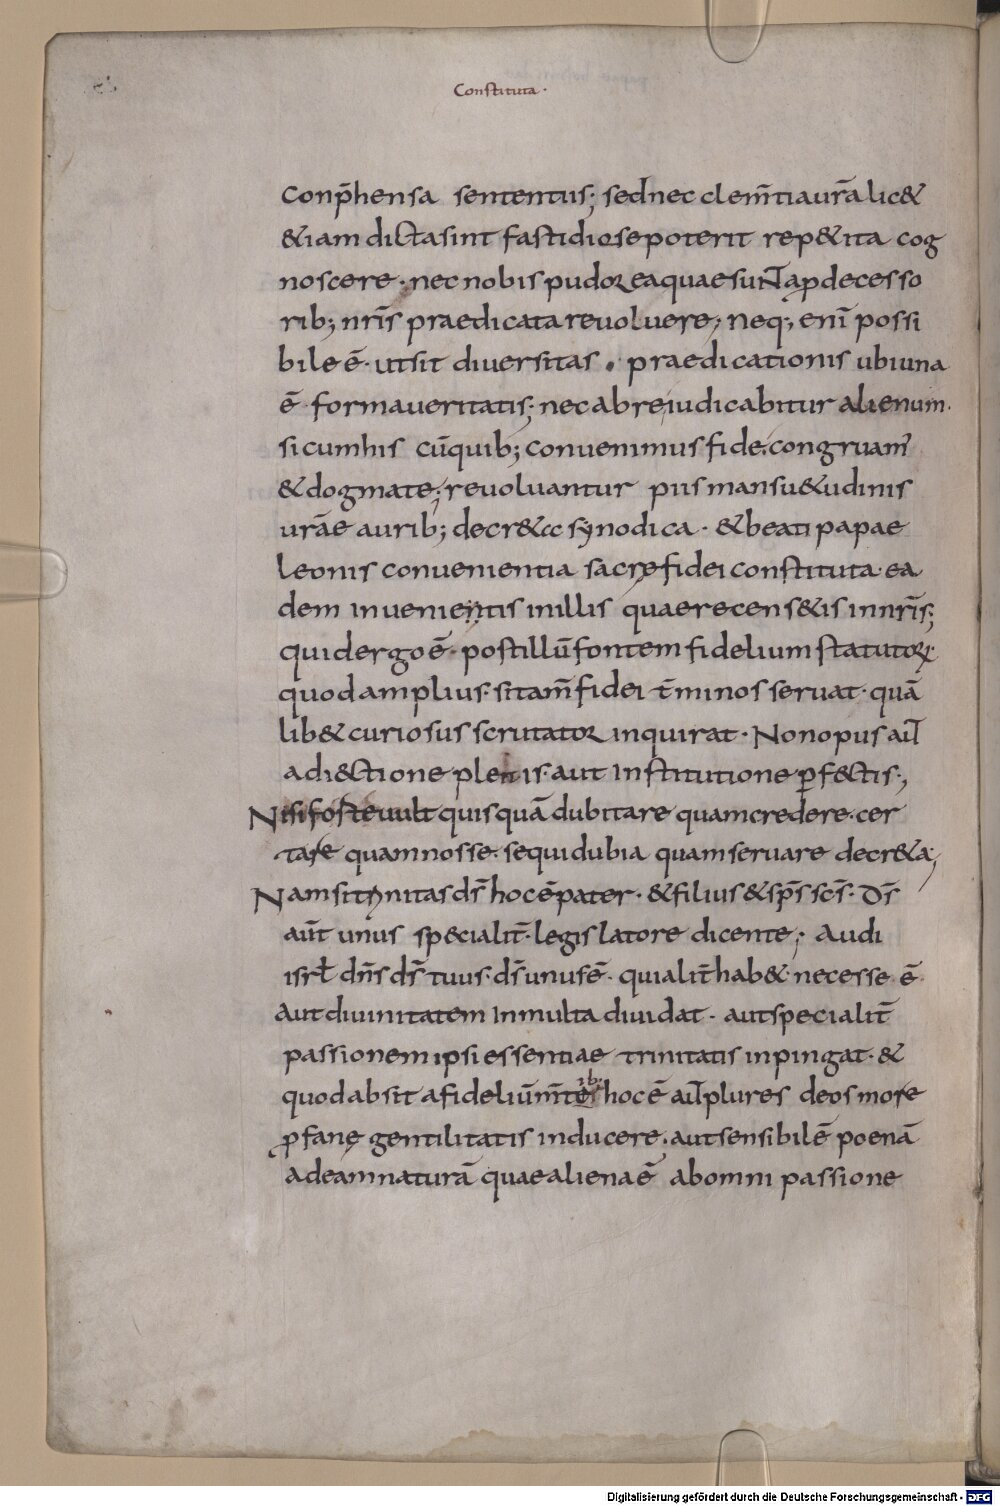 Constituta·
Conp̄hensa sententiis; sed nec clem̄tia ur̄a lic&
&iam dicta sint fastidiose poterit rep&ita cog
noscere· nec nobis pudor ea quae sunt a p̱decesso
rib; nr̄is praedicata reuoluere; Neq; enī possi
bile ē· ut sit diuersitas · praedicationis ubi una
ē forma ueritatis; nec ab re iudicabitur alienum·
si cum his cū quib; conuenimus fide· congruam̄
& dogmate; reuoluantur piis mansu&udinis
ur̄ae aurib; decr&a synodica · & beati papae
leonis conuenientia sacrę fidei constituta· ea
dem inuenientis in illis quae recens&is in nr̄is;
quid ergo ē· post illū fontem fidelium statutorꝝ
quod amplius· si tam̄ fidei t̄minos seruat· quā
lib& curiosus scrutator inquirat· Non opus aut̄
adi&ctione plenis· aut institutione p̱f&ctis·,
Nisi foste uult quis quā dubitare quam credere· cer
tare quam nosse· sequi dubia quam seruare decr&a;
Nam si trinitas ds̄ hoc ē pater· & filius & sp̄s sc̄s· Ds̄
aūt unus specialit̄· legislatore dicente; Audi
isrł dn̄s ds̄ tuus· ds̄ unus ē· qui alit̄ hab& necesse ē·
Aut diuinitatem in multa diuidat· aut specialit̄
passionem ipsi essentiae trinitatis inpingat· &
quod absit a fideliū m̄tib; hoc ē aut̄ plures deos more
p̱fanę gentilitatis inducere· aut sensibilē poenā
ad eam naturā quae aliena ē ab omni passione
Digitalisierung gefördert durch die Deutsche Forschungsgemeinschaft - DFG